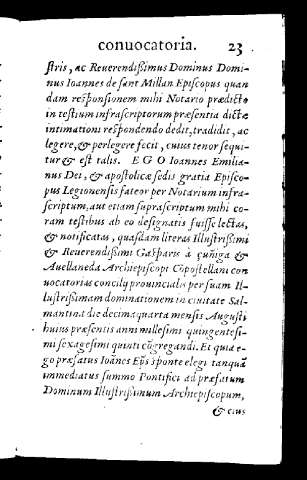 conuocatoria. 23
stris, ac Reuerendißimus Dominus Domi-
nus Ioannes de sant Millan Episcopus quan
dam respōnsionem mihi Notario prædicto
in testium infrascriptorum præsentia dictæ
intimationi respondendo dedit, tradidit, ac
legere, & perlegere fecit, cuius tenor sequi-
tur & est talis. E G O Ioannes Emilia-
nus Dei, & apostolicæ sedis gratia Episco-
pus Legionensis fateor per Notarium infra-
scriptum, aut etiam suprascriptum mihi co-
ram testibus ab eo designatis fuisse lectas,
& notificatas, quasdam literas Illustrißimi
& Reuerendißimi Gasparis à çuñiga &
Auellaneda Archiepiscopi Cōpostellani con
uocatorias concilij prouincialis per suam Il-
lustrißimam dominationem in ciuitate Sal-
mantina die decimaquarta mensis Augusti
huius præsentis anni millesimi quingentesi-
mi sexagesimi quinti cōgregandi. Et quia e-
go præfatus Ioānes Ep̄s sponte elegi tanquā
immediatus summo Pontifici ad præfatum
Dominum Illustrißimum Archiepiscopum,
& eius